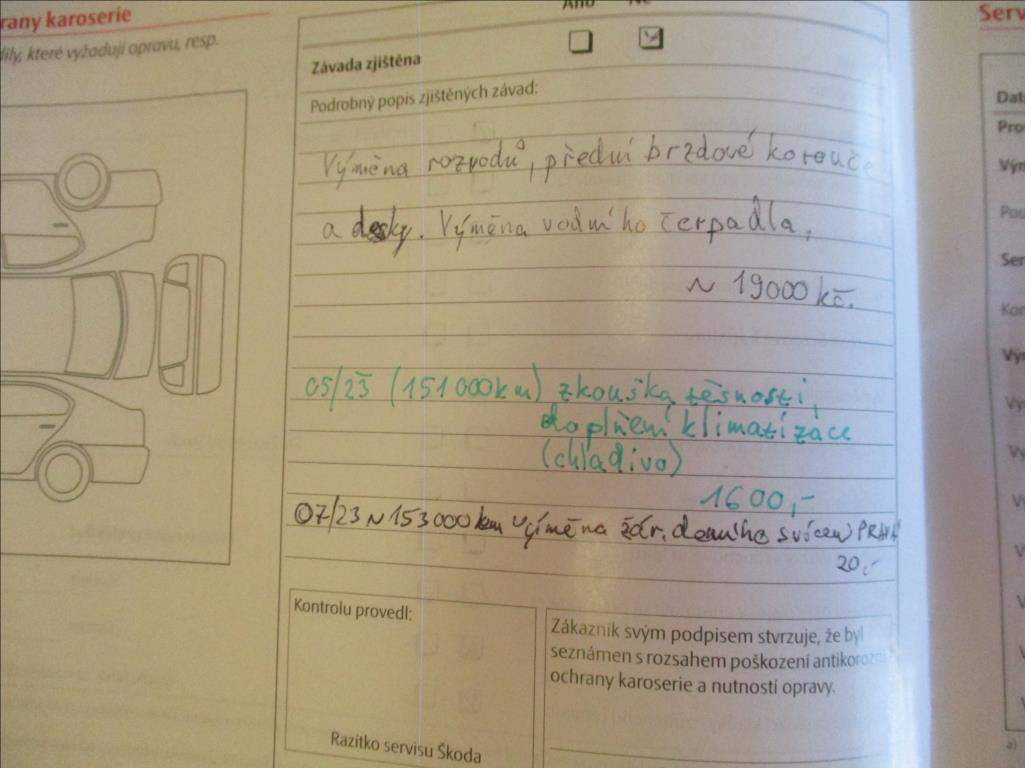 rany karoserie
díly, které vyžadují opravu, resp.
Ano Ne
Závada zjištěna
Podrobný popis zjištěných závad:
Výměna rozvodů, přední brzdové kotouče
a desky. Výměna vodního čerpadla,
~ 19000 kč.
05/23 (151 000km) zkouška těsnosti,
doplnění klimatizace
(chladivo)
1600,-
07/23 ~ 153000km výměna žár. denního svícení PRAVÁ
20,-
Kontrolu provedl:
Razítko servisu Škoda
Zákazník svým podpisem stvrzuje, že byl
seznámen s rozsahem poškození antikorozní
ochrany karoserie a nutností opravy.
Serv
Dat
Pro
Výn
Pou
Ser
Kon
Vý
a)